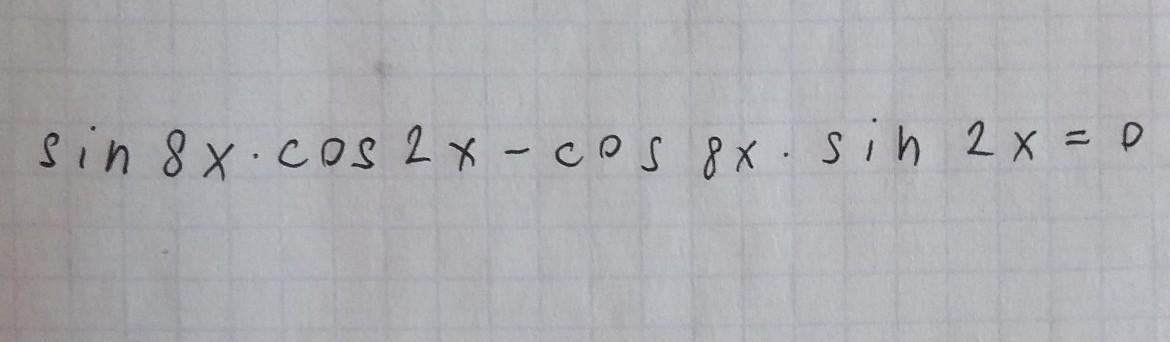 sin 8x · cos 2x - cos 8x · sin 2x = 0